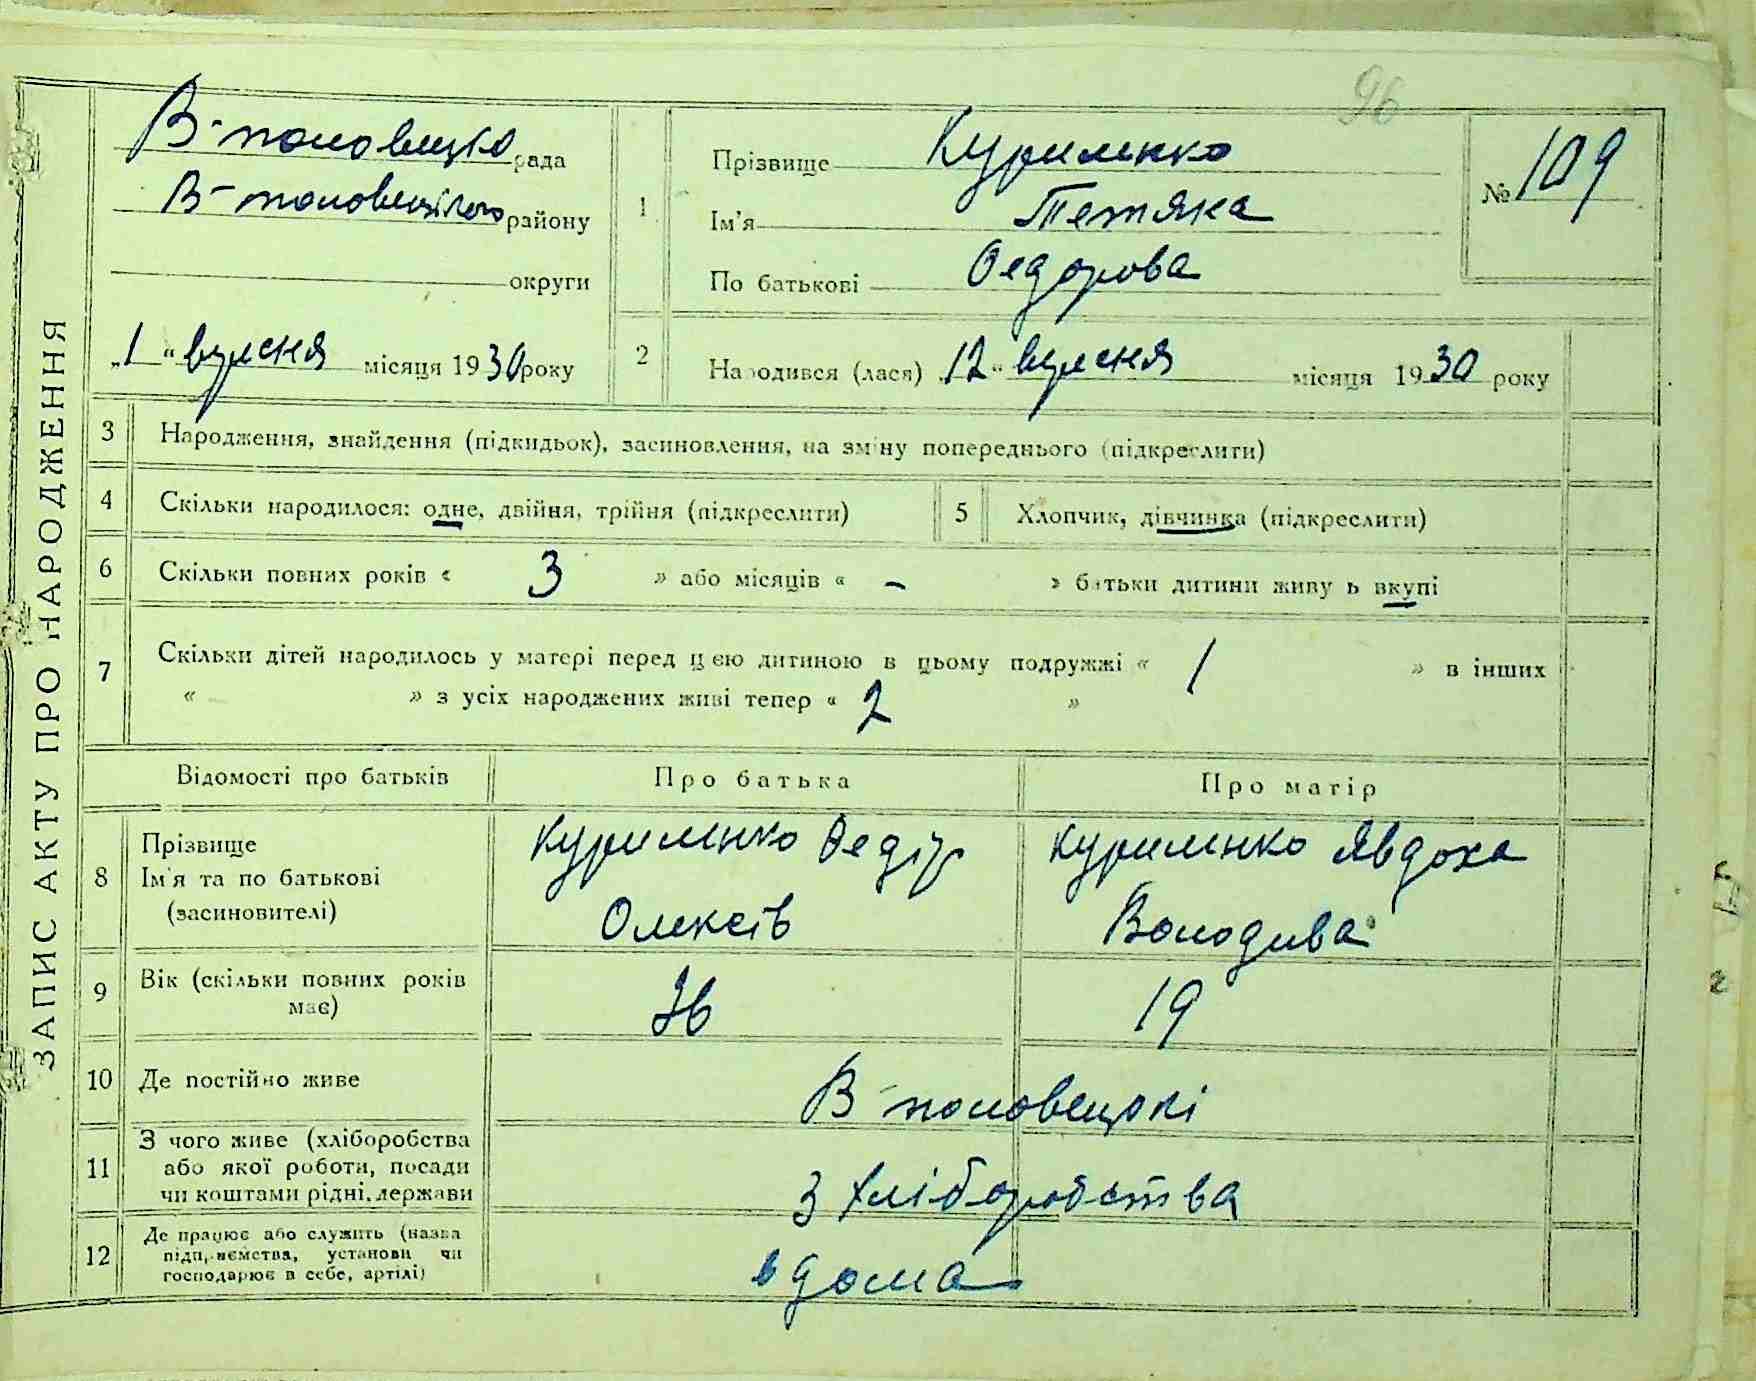 96
ЗАПИС АКТУ ПРО НАРОДЖЕННЯ
В-половецко рада
В-половецького району
округи
„1“ вересня місяця 1930 року
1 Прізвище Куриленко
Ім'я Тетяна
По батькові Федорова
№ 109
2 Народився (лася) „12“ вересня місяця 1930 року
3 Народження, знайдення (підкидьок), засиновлення, на зміну попереднього (підкреслити)
4 Скільки народилося: одне, двійня, трійня (підкреслити)
5 Хлопчик, дівчинка (підкреслити)
6 Скільки повних років « 3 » або місяців « – » батьки дитини живуть вкупі
7 Скільки дітей народилось у матері перед цією дитиною в цьому подружжі « 1 » в інших
« » з усіх народжених живі тепер « 2 »
Відомості про батьків Про батька Про матір
8 Прізвище
Ім'я та по батькові
(засиновителі)
Куриленко Федір
Олексів
Куриленко Явдоха
Володива
9 Вік (скільки повних років
має)
19
10 Де постійно живе В-половецькі
11 З чого живе (хліборобства
або якої роботи, посади
чи коштами рідні, держави
З хліборобства
12 Де працює або служить (назва
підприємства, установи чи
господарює в себе, артілі)
вдома